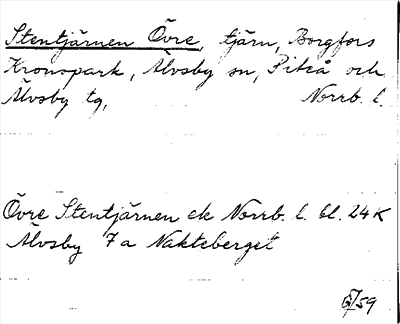 Stentjärnen Övre, tjärn, Borgfors
Kronopark, Älvsby sn, Piteå och
Älvsby tg, Norrb. l.
Övre Stentjärnen ek Norrb. l. bl. 24 K
Älvsby 7 a Nakteberget
59